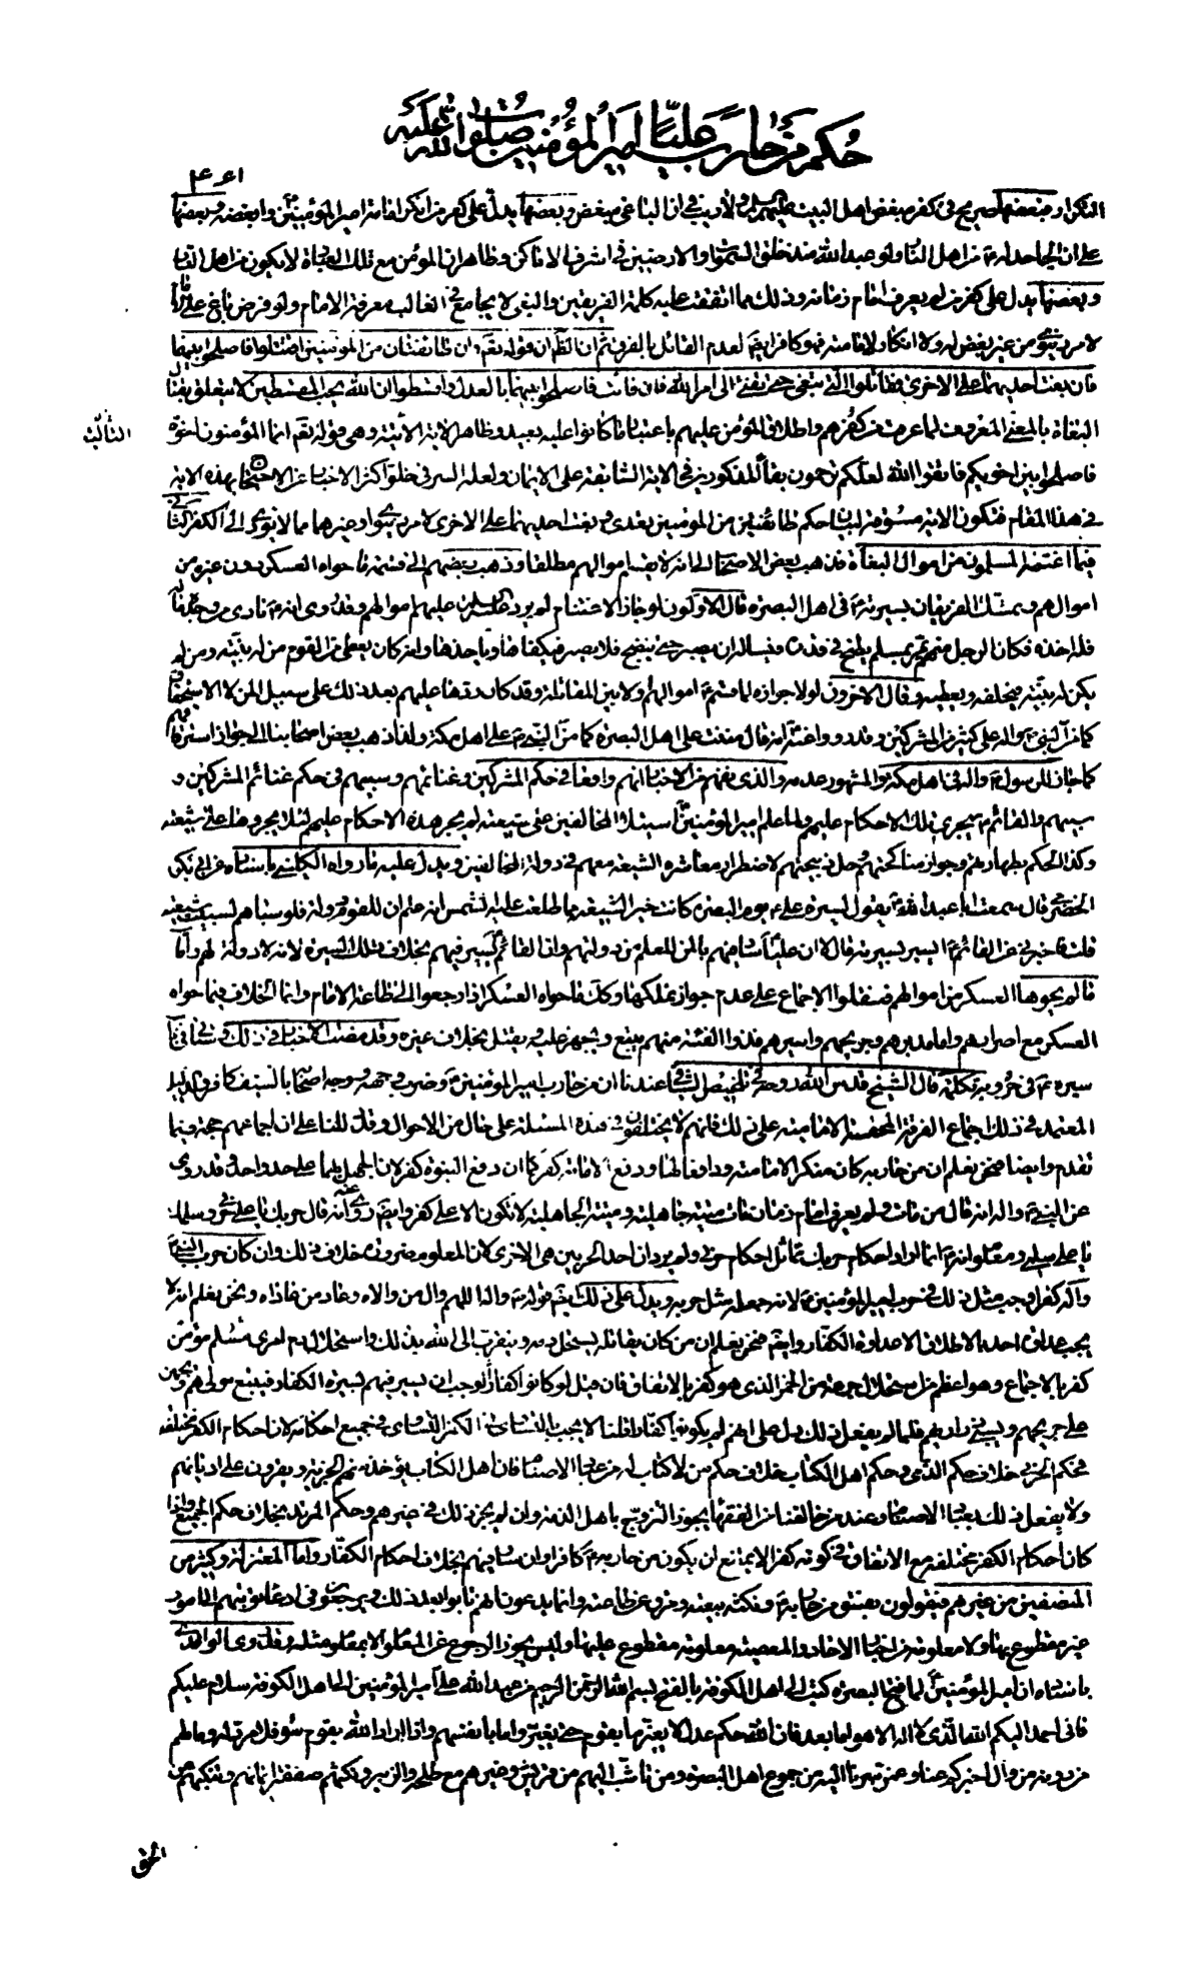 حكم من حارب عليًّا أمير المؤمنين صلوات الله عليه
٤٤١
التكرار وبعضها صريح في كفر مبغض اهل البيت عليهم السلم ولا ريب في ان الباغي مبغض وبعضها يدل على كفر من انكر امامة امير المؤمنين وابغضه وبعضها
على ان الجاحد له ع من اهل النار ولو عبد الله منذ خلق السموات والارضين في اشرف الاماكن وظاهر ان المؤمن مع تلك العبادة لا يكون من اهل النار
وبعضها يدل على كفر من لم يعرف امام زمانه وذلك مما اتفقت عليه كلمة الفريقين والبغي لا يجامع في الغالب معرفة الامام ولو فرض باغ على
لامر دنيوي من غير بغض له ولا انكار لامامته فهو كافر ايضا لعدم القائل بالفرق ثم ان الظاهر ان قوله تعالى وان طائفتان من المؤمنين اقتتلوا فاصلحوا بينهما
فان بغت احديهما على الاخرى فقاتلوا التي تبغي حتى تفئ الى امر الله فان فائت فاصلحوا بينهما بالعدل واقسطوا ان الله يحب المقسطين لا يتعلق بقتال
البغاة بالمعنى المعروف لما عرفت من كفرهم واطلاق المؤمن عليهم باعتبار ما كانوا عليه بعيد وظاهر الاية الآتية وهي قوله تعالى انما المؤمنون اخوة
الثالث
فاصلحوا بين اخويكم فاتقوا الله لعلكم ترحمون بقاء المذكورين في الاية السابقة على الايمان ولعله السر في خلو اكثر الاخبار عن الاحتجاج بهذه الاية
في هذا المقام فتكون الاية مسوقة لبيان حكم طائفتين من المؤمنين تعدى وبغت احديهما على الاخرى لامر دنيوي او غيرهما مما لا يؤدي الى الكفر
فيما اغتنمه المسلمون من اموال البغاة فذهب بعض الاصحاب الى انه لا يقسم اموالهم مطلقا وذهب بعضهم الى قسمة ما حواه العسكر دون غيره من
اموالهم وتمسك الفريقان بسيرته ع في اهل البصرة قال الاولون لو جاز الاغتنام لم يرد عليهم اموالهم وقد روي انه ع نادى من وجد ماله
فله اخذه فكان الرجل منهم يمر بمسلم يطبخ في قدره فيسأله ان يصبر حتى ينضج فلا يصبر فيكفاها وياخذها وانه كان يعطي من القوم من له بينة ومن لم
يكن له بينة فيحلفه ويعطيه وقال الاخرون لولا جوازه لما قسم ع اموالهم اولا بين المقاتلة وقد كان ردها عليهم بعد ذلك على سبيل المن لا الاستحقاق
كما من النبي ص على كثير من المشركين وقد رووا عنه ع انه قال مننت على اهل البصرة كما من النبي ص على اهل مكة ولذا ذهب بعض اصحابنا الى جواز استرقاقهم
كما جاز للرسول ص في اهل مكة والمشهور عدمه والذي نفهم من الاخبار انهم واقعا في حكم المشركين وغنائمهم وسبيهم في حكم غنائم المشركين و
سبيهم والقائم ع يجري تلك الاحكام عليهم ولما علم امير المؤمنين استيلاء المخالفين على شيعته لم يجر هذه الاحكام عليهم لئلا يجروها على شيعته
وكذا الحكم بطهارتهم وجواز مناكحتهم وحل ذبيحتهم لاضطرار معاشرة الشيعة معهم في دولة المخالفين ويدل عليه ما رواه الكليني باسناده عن ابي بكر
الحضرمي قال سمعت ابا عبد الله ع يقول لسيرة علي ع يوم البصرة كانت خيرا لشيعته مما طلعت عليه الشمس انه علم ان للقوم دولة فلو سباهم لسبيت شيعته
قلت فاخبرني عن القائم ع ايسير بسيرته قال لا ان عليا ع سار فيهم بالمن للعلم من دولتهم وان القائم ع يسير فيهم بخلاف تلك السيرة لانه لا دولة لهم واما
ما لم يحوها العسكر من اموالهم فنقلوا الاجماع على عدم جواز تملكها وكذلك ما حواه العسكر اذا رجعوا الى طاعة الامام وانما الخلاف فيما حواه
العسكر مع اصرارهم واما مدبرهم وجريحهم واسيرهم فذوا الفئة منهم يتبع ويجهز عليه ويقتل بخلاف غيره وقد مضت الاخبار في ذلك في باب
سيره ع في حروبه تكملة قال الشيخ قدس الله روحه في تلخيص الشافي عندنا ان من حارب امير المؤمنين ع وضرب وجهه ووجه اصحابه بالسيف كافر والدليل
المعتمد في ذلك اجماع الفرقة المحقة الامامية على ذلك فانهم لا يختلفون في هذه المسئلة على حال من الاحوال وقد دللنا على ان اجماعهم حجة فيما
تقدم وايضا فنحن نعلم ان من حاربه كان منكرا لامامته ودافعا لها ودفع الامامة كفر كما ان دفع النبوة كفر لان الجهل بهما على حد واحد وقد روي
عن النبي ص انه قال من مات ولم يعرف امام زمانه مات ميتة جاهلية وميتة الجاهلية لا تكون الا على كفر وايضا روي عنه ص انه قال حربك يا علي حربي وسلمك
يا علي سلمي ومعلوم انه ص انما اراد احكام حربك تماثل احكام حربي ولم يرد ان احد الحربين هي الاخرى لان المعلوم ضرورة خلاف ذلك وان كان حرب النبي ص
واله كفرا وجب مثل ذلك في حرب امير المؤمنين ع لانه جعله مثل حربه ويدل على ذلك ايضا قوله ص اللهم وال من والاه وعاد من عاداه ونحن نعلم انه لا
يجب عداوة احد بالاطلاق الا عداوة الكفار وايضا فنحن نعلم ان من كان يقاتله يستحل دمه ويتقرب الى الله بذلك واستحلال دم امرئ مسلم مؤمن
كفر بالاجماع وهو اعظم من استحلال جرعة من الخمر الذي هو كفر بالاتفاق فان قيل لو كانوا كفارا لوجب ان يسير فيهم بسيرة الكفار فيتبع موليهم ويجهز
على جريحهم ويسبي ذراريهم فلما لم يفعل ذلك دل على انهم لم يكونوا كفارا قلنا لا يجب بالتساوي في الكفر التساوي في جميع احكامه لان احكام الكفر مختلفة
فحكم الحربي خلاف حكم الذمي وحكم اهل الكتاب خلاف حكم من لا كتاب له من عباد الاصنام فان اهل الكتاب يؤخذ منهم الجزية ويقرون على اديانهم
ولا يفعل ذلك بعباد الاصنام وعند من خالفنا من الفقهاء يجوز التزويج باهل الذمة وان لم يجز ذلك في غيرهم وحكم المرتد بخلاف حكم الجميع واذا
كان احكام الكفر مختلفة مع الاتفاق في كونه كفرا لا يمتنع ان يكون من حاربه ع كافرا وان سار فيهم بخلاف احكام الكفار واما المعتزلة وكثير من
المنصفين من غيرهم فيقولون بفسق من حاربه ع ونكث بيعته وخرج عن طاعته وانما يدعون انهم تابوا بعد ذلك ويرجعون في ادعاء توبتهم الى امور
غير مقطوع بها ولا معلومة من اخبار الاحاد والمعصية معلومة مقطوع عليها وليس يجوز الرجوع عن المعلوم الا بمعلوم مثله وقد روى الواقدي
باسناده ان امير المؤمنين ع لما فتح البصرة كتب الى اهل الكوفة بالفتح بسم الله الرحمن الرحيم من عبد الله علي امير المؤمنين الى اهل الكوفة سلام عليكم
فاني احمد اليكم الله الذي لا اله الا هو اما بعد فان الله حكم عدل لا يغير ما بقوم حتى يغيروا ما بانفسهم واذا اراد الله بقوم سوء فلا مرد له وما لهم
من دونه من وال اخبركم عنا وعمن سرنا اليه من جموع اهل البصرة ومن تأشب اليهم من قريش وغيرهم مع طلحة والزبير ونكثهم صفقة ايمانهم وتنكبهم عن
الحق